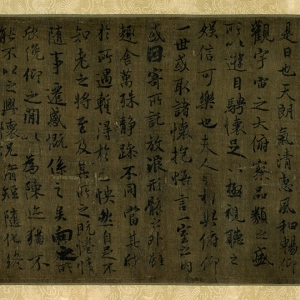 是日也天朗氣清惠風和暢仰
觀宇宙之大俯察品類之盛
所以遊目騁懷足以極視聽之
娛信可樂也夫人之相與俯仰
一世或取諸懷抱悟言一室之內
或因寄所託放浪形骸之外雖
趣舍萬殊靜躁不同當其欣
於所遇暫得於己怏然自足不
知老之將至及其所之既惓情
隨事遷感慨係之矣向之所
欣俛仰之間以為陳迹猶不
能不以之興懷況脩短隨化終